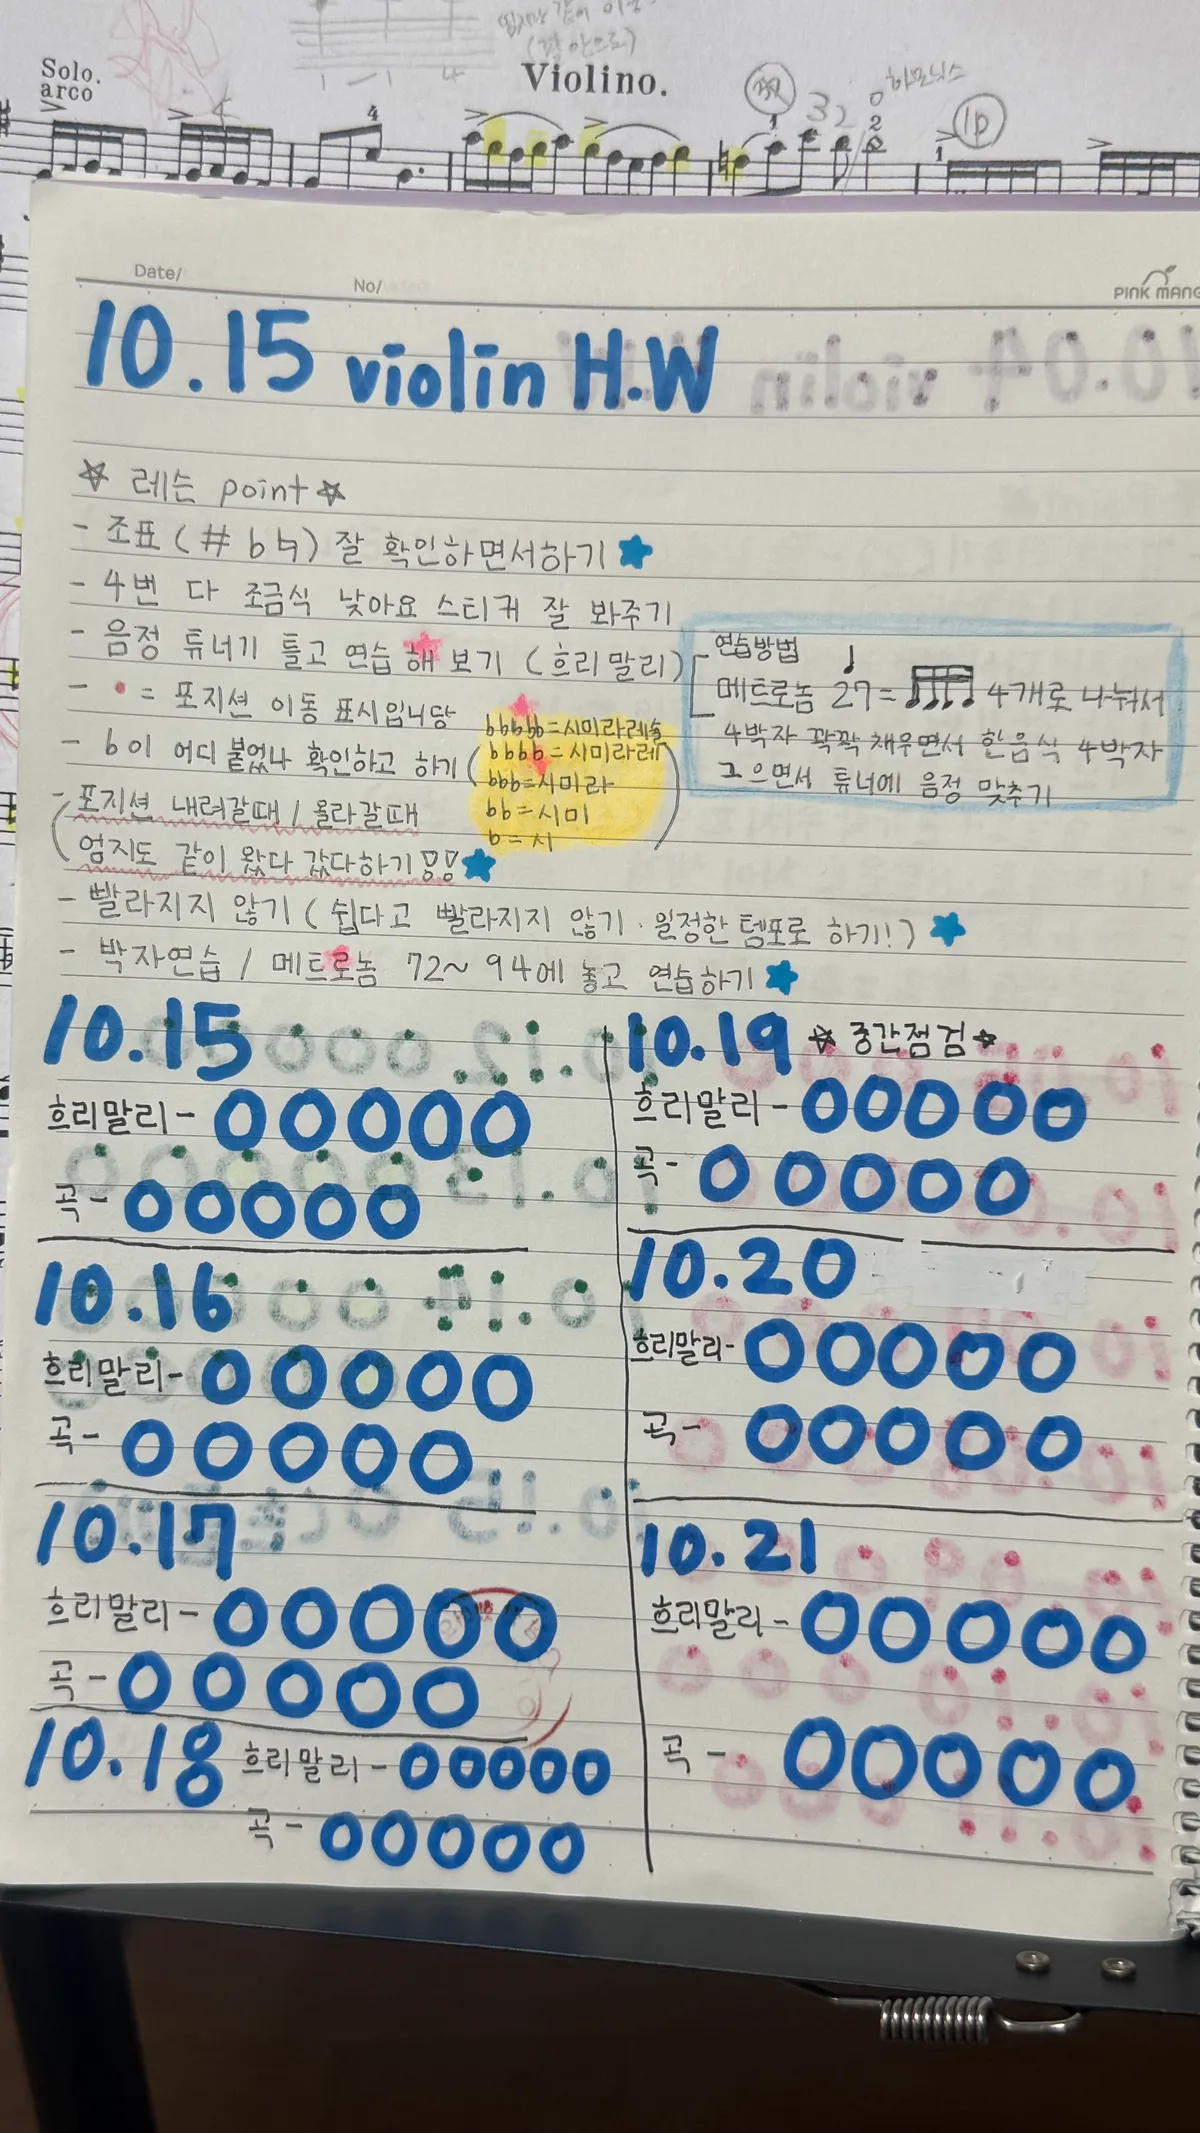 Solo.
arco
Violino.
하모닉스
1p
Date/
No/
PINK MANG
10.15 violin H.W
☆ 레슨 point ☆
- 조표 (# b ♮) 잘 확인하면서하기 ★
- 4번 다 조금씩 낮아요 스티커 잘 봐주기
- 음정 튜너기 틀고 연습 해 보기 (흐리말리)
- • = 포지션 이동 표시입니당
- b이 어디 붙었나 확인하고 하기
bbbbb=시미라레솔
bbbb=시미라레
bbb=시미라
bb=시미
b=시
연습방법
메트로놈 ♩27= 4개로 나눠서
4박자 꽉꽉 채우면서 한음씩 4박자
그으면서 튜너에 음정 맞추기
- 포지션 내려갈때 / 올라갈때
엄지도 같이 왔다 갔다하기!! ★
- 빨라지지 않기 (쉽다고 빨라지지 않기 · 일정한 템포로 하기!) ★
- 박자연습 / 메트로놈 72~94에 놓고 연습하기 ★
10.15
흐리말리 - OOOOO
곡 - OOOOO
10.16
흐리말리 - OOOOO
곡 - OOOOO
10.17
흐리말리 - OOOOO
곡 - OOOOO
10.18 흐리말리 - OOOOO
곡 - OOOOO
10.19 ☆ 중간점검 ☆
흐리말리 - OOOOO
곡 - OOOOO
10.20
흐리말리 - OOOOO
곡 - OOOOO
10.21
흐리말리 - OOOOO
곡 - OOOOO